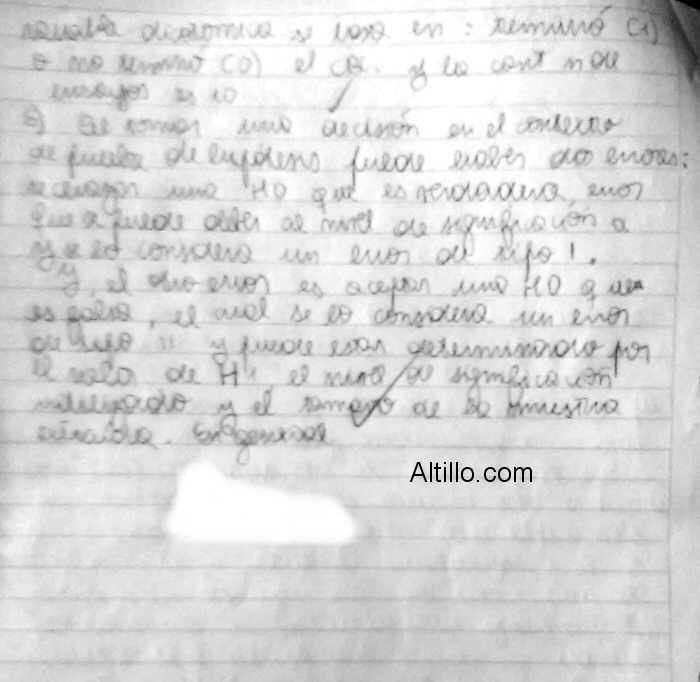 variable dicotómica se basa en: terminó (1)
o no terminó (0) el CBC. y la cant n de
ensayos es 10
5) Al tomar una decisión en el contexto
de prueba de hipótesis puede haber dos errores:
rechazar una H0 que es verdadera, error
que puede deber al nivel de significación α
y se lo considera un error de tipo I.
Y, el otro error es aceptar una H0 que
es falsa, el cual se lo considera un error
de tipo II y puede estar determinado por
el valor de H1 el nivel de significación
y el tamaño de la muestra
extraída. En general
Altillo.com